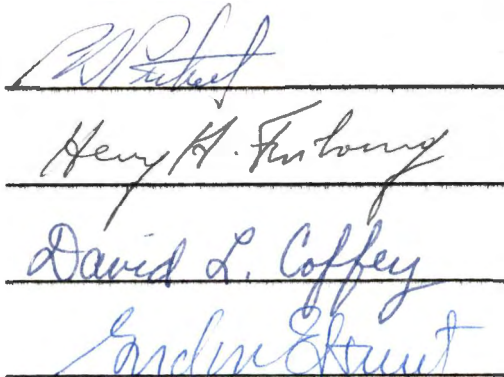 Henry H. Furlong
David L. Coffey
Gordon E Hunt